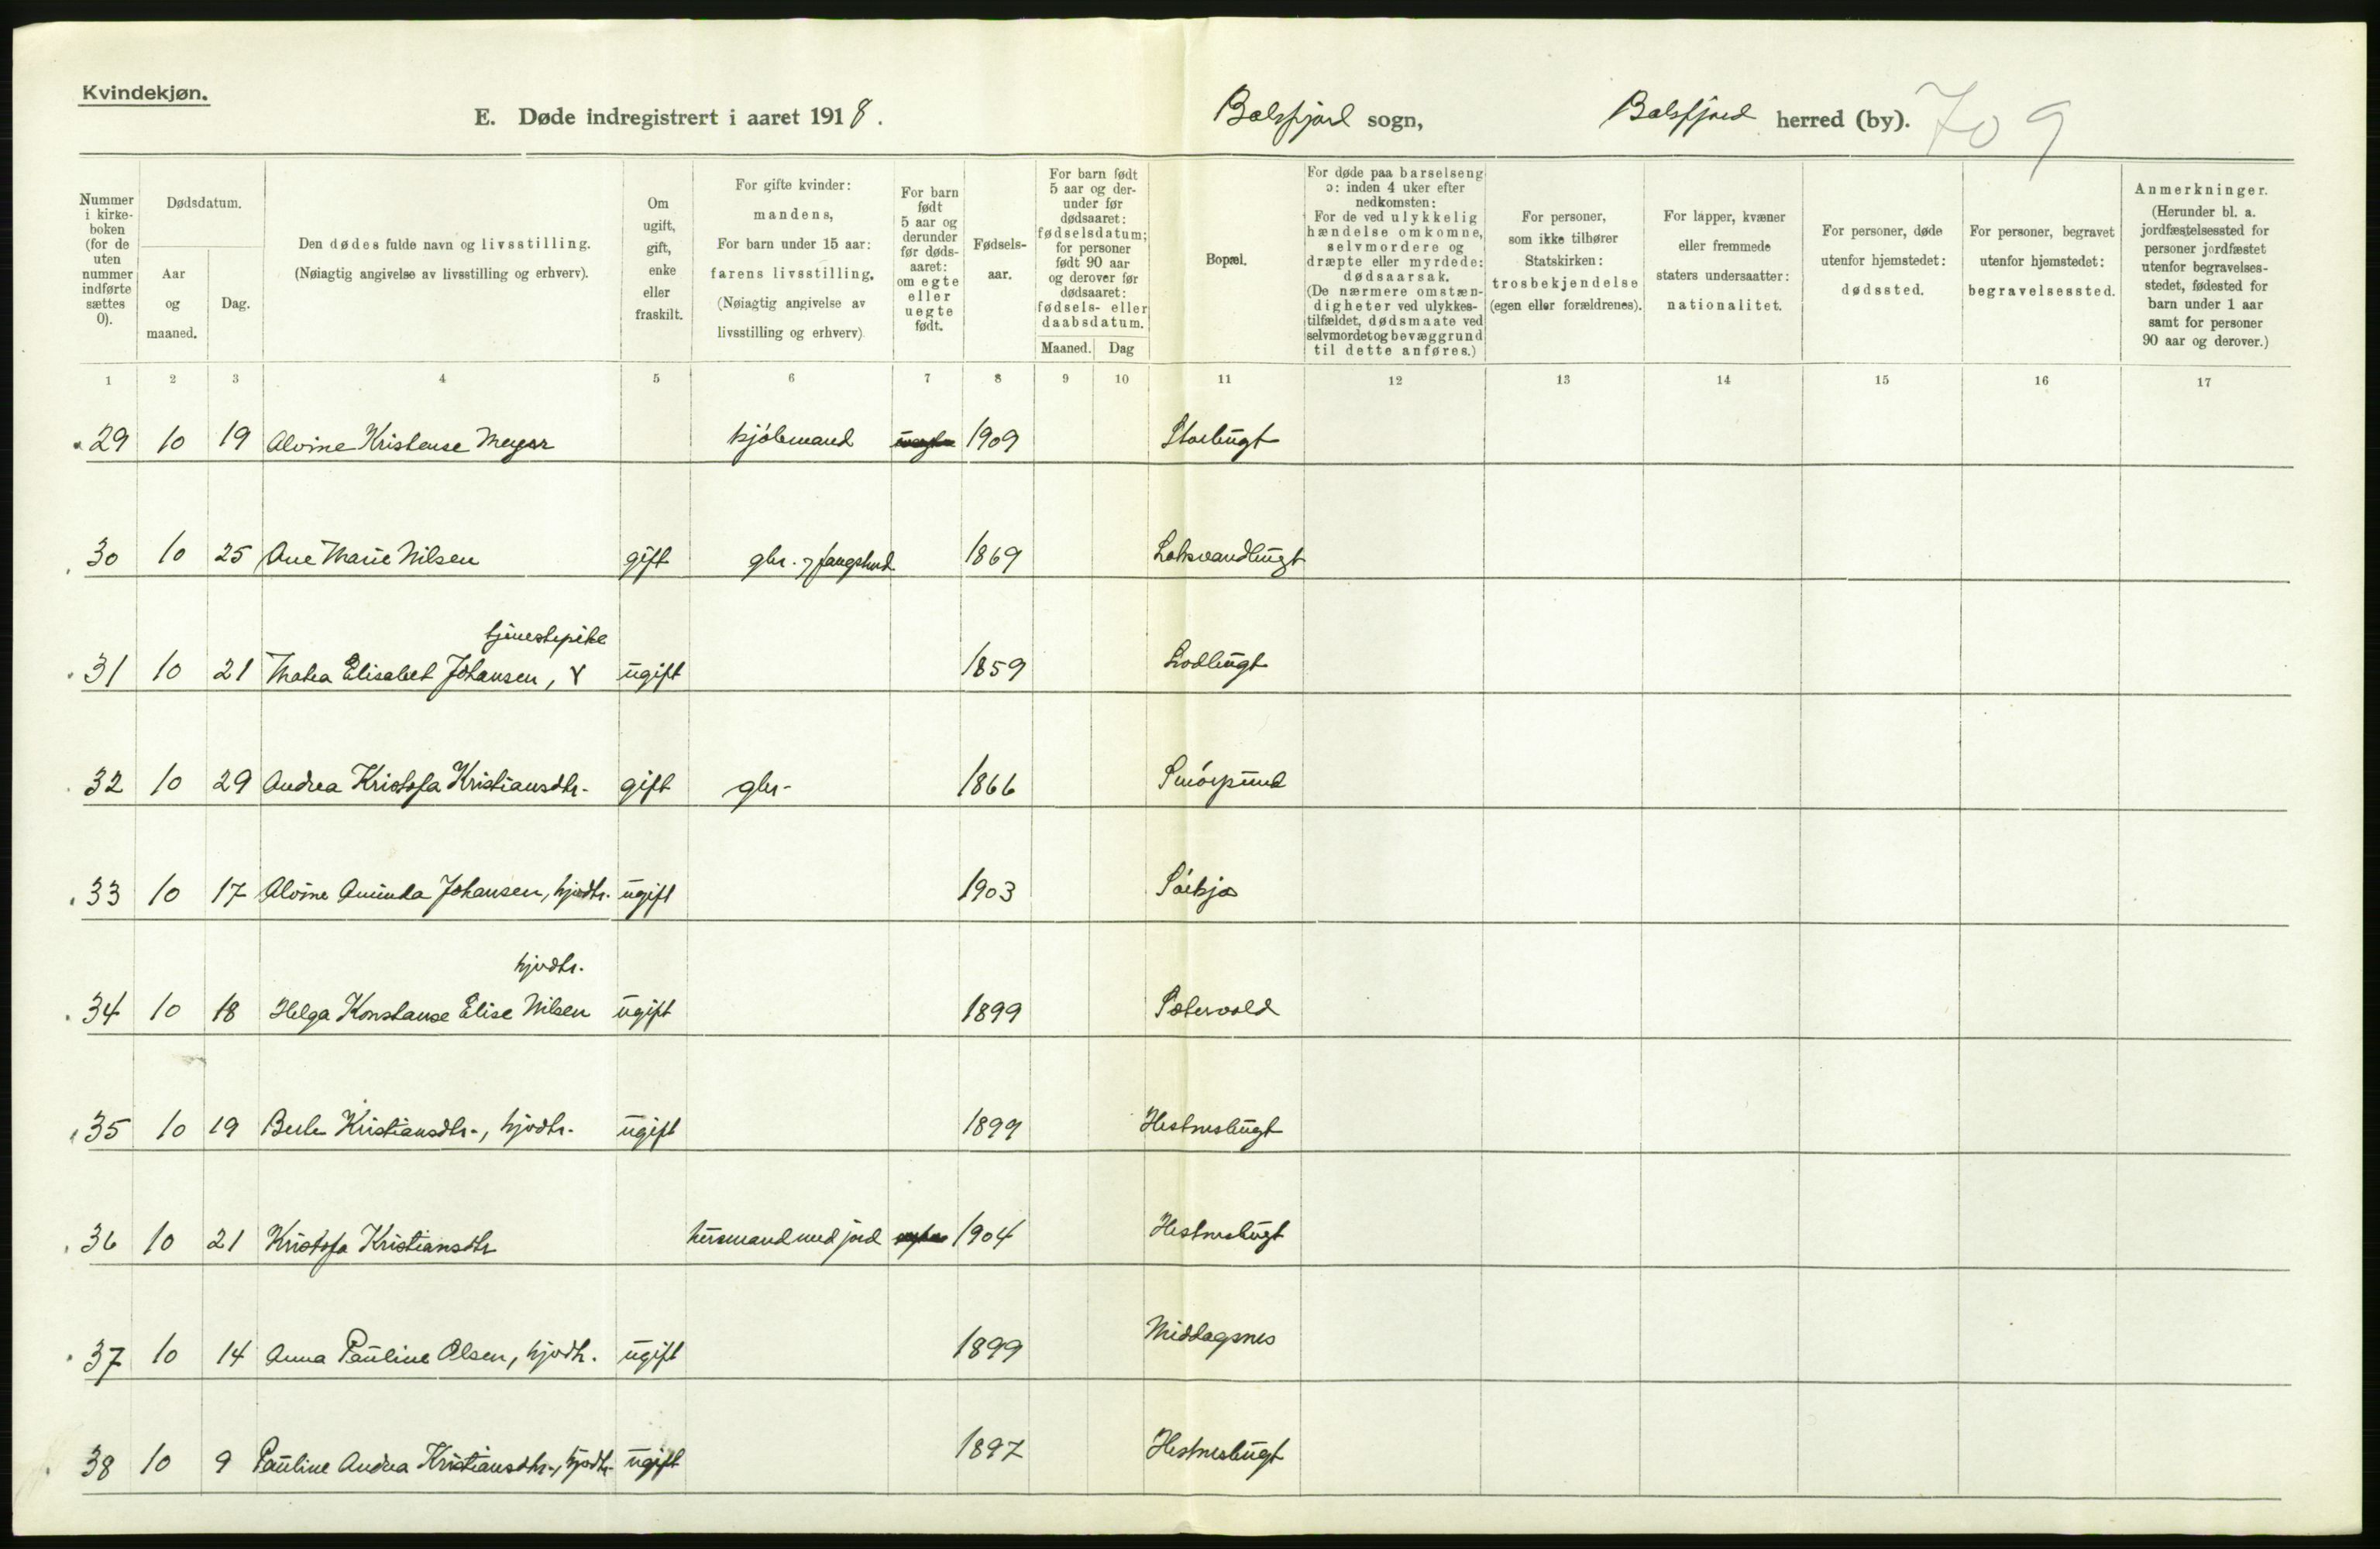 Kvindekjøn.
E. Døde indregistrert i aaret 1918. Balsfjord sogn, Balsfjord herred (by). 709
Nummer i kirke-boken (for de uten nummer indførte sættes 0).
Dødsdatum.
Aar og maaned.
Dag.
Den dødes fulde navn og livsstilling.
(Nøiagtig angivelse av livsstilling og erhverv).
Om ugift, gift, enke eller fraskilt.
For gifte kvinder: mandens,
For barn under 15 aar: farens livsstilling.
(Nøiagtig angivelse av livsstilling og erhverv)
For barn født 5 aar og derunder før døds-aaret: om egte eller uegte født.
Fødsels-aar.
For barn født 5 aar og der-under før dødsaaret: fødselsdatum; for personer født 90 aar og derover før dødsaaret: fødsels- eller daabsdatum.
Maaned. Dag
Bopæl.
For døde paa barselseng ɔ: inden 4 uker efter nedkomsten:
For de ved ulykkelig hændelse omkomne, selvmordere og dræpte eller myrdede: dødsaarsak.
(De nærmere omstæn-digheter ved ulykkes-tilfældet, dødsmaate ved selvmordet og bevæggrund til dette anføres.)
For personer, som ikke tilhører Statskirken: trosbekjendelse (egen eller forældrenes).
For lapper, kvæner eller fremmede staters undersaatter: nationalitet.
For personer, døde utenfor hjemstedet: dødssted.
For personer, begravet utenfor hjemstedet: begravelsessted.
Anmerkninger.
(Herunder bl. a. jordfæstelsessted for personer jordfæstet utenfor begravelses-stedet, fødested for barn under 1 aar samt for personer 90 aar og derover.)
1 2 3 4 5 6 7 8 9 10 11 12 13 14 15 16 17
29 10 19 Alvine Kristense Meyer kjøbmand 1909 Storbugt
30 10 25 Ane Marie Nilsen gift gbr. 1869 Laksvandbugt
tjenestepike
31 10 21 Mathea Elisabet Johansen, ugift 1859 Lodbugt
32 10 29 Andrea Kristofa Kristiansdtr. gift gbr. 1866
33 10 17 Alvine Aminda Johansen, hjvdtr. ugift 1903 Sörkjos
hjvdtr.
34 10 18 Helga Konstanse Elise Nilsen ugift 1899 Sætervold
35 10 19 Berte Kristiansdtr., hjvdtr. ugift 1899 Hestnesbugt
36 10 21 Kristofa Kristiansdtr husmand med jord 1904 Hestnesbugt
37 10 14 Anna Pauline Olsen, hjvdtr. ugift 1899 Middagsnes
38 10 9 Pauline Andrea Kristiansdtr., hjvdtr. ugift 1897 Hestnesbugt